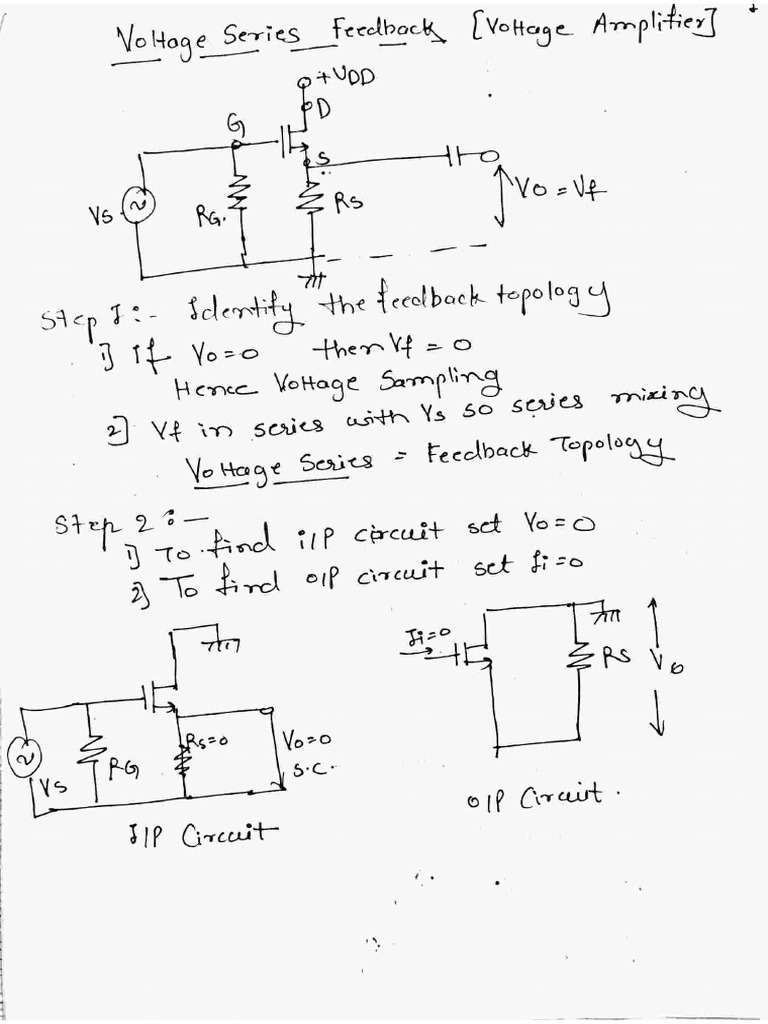 Voltage Series Feedback [Voltage Amplifier]
+VDD
D
G
S
Vs
RG.
RS
Vo = Vf
Step I :- Identify the feedback topology
1) If Vo = 0 then Vf = 0
Hence Voltage Sampling
2] Vf in series with Vs so series mixing
Voltage Series = Feedback Topology
Step 2 :-
1) To find i/P circuit set Vo = 0
2) To find o/P circuit set Ii = 0
Ii=0
RS
Vo
Rs=0
Vo=0
S.C.
RG
Vs
O/P Circuit.
I/P Circuit